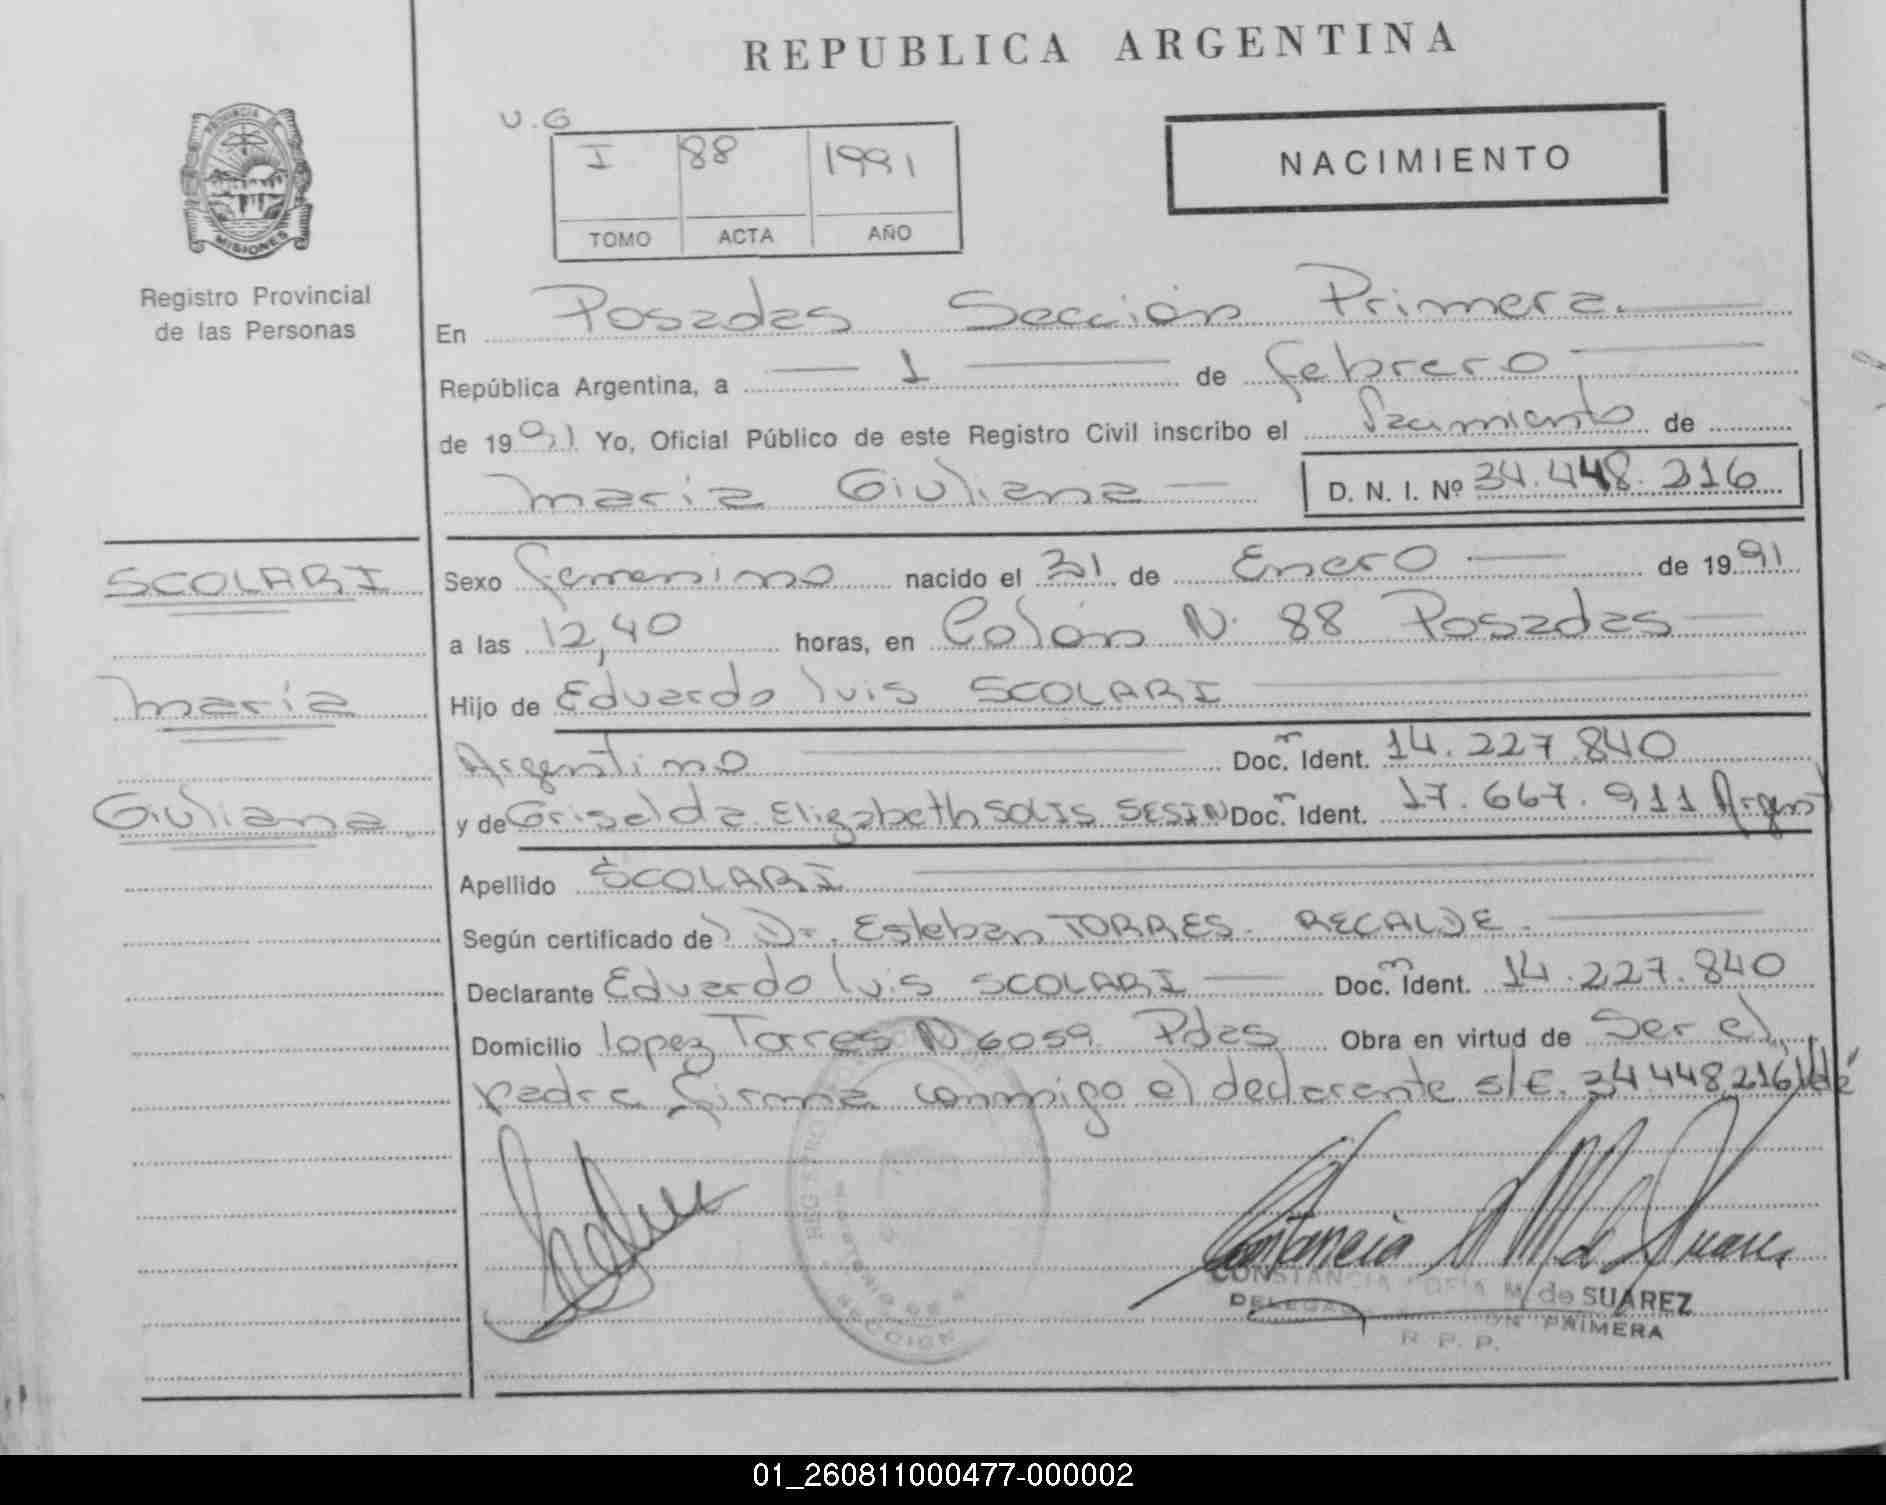 REPUBLICA ARGENTINA
U.G
I 88 1991
TOMO ACTA AÑO
NACIMIENTO
PROVINCIA DE
MISIONES
Registro Provincial
de las Personas
En Posadas Sección Primera.
República Argentina, a — 1 — de febrero
de 1991 Yo, Oficial Público de este Registro Civil inscribo el nacimiento de
maria Giuliana — D. N. I. Nº 34.448.216
SCOLARI
maria
Giuliana
Sexo femenino nacido el 31 de Enero — de 1991
a las 12,40 horas, en Colón N. 88 Posadas —
Hijo de Eduardo luis SCOLARI
Argentino — Doc. Ident. 14.227.840
y de Griselda Elizabeth SOLIS SESIN Doc. Ident. 17.667.911 Argent
Apellido SCOLARI
Según certificado de Dr. Esteban TORRES. RECALDE.
Declarante Eduardo luis SCOLARI — Doc. Ident. 14.227.840
Domicilio lopez Torres N 6059 Pdas Obra en virtud de Ser el
padre firma conmigo el declarante s/E. 34448216
Constancia M de Suarez
CONSTANCIA SOFIA M. de SUAREZ
DELEGADA SECCION PRIMERA
R. P. P.
SECCION
01_260811000477-000002